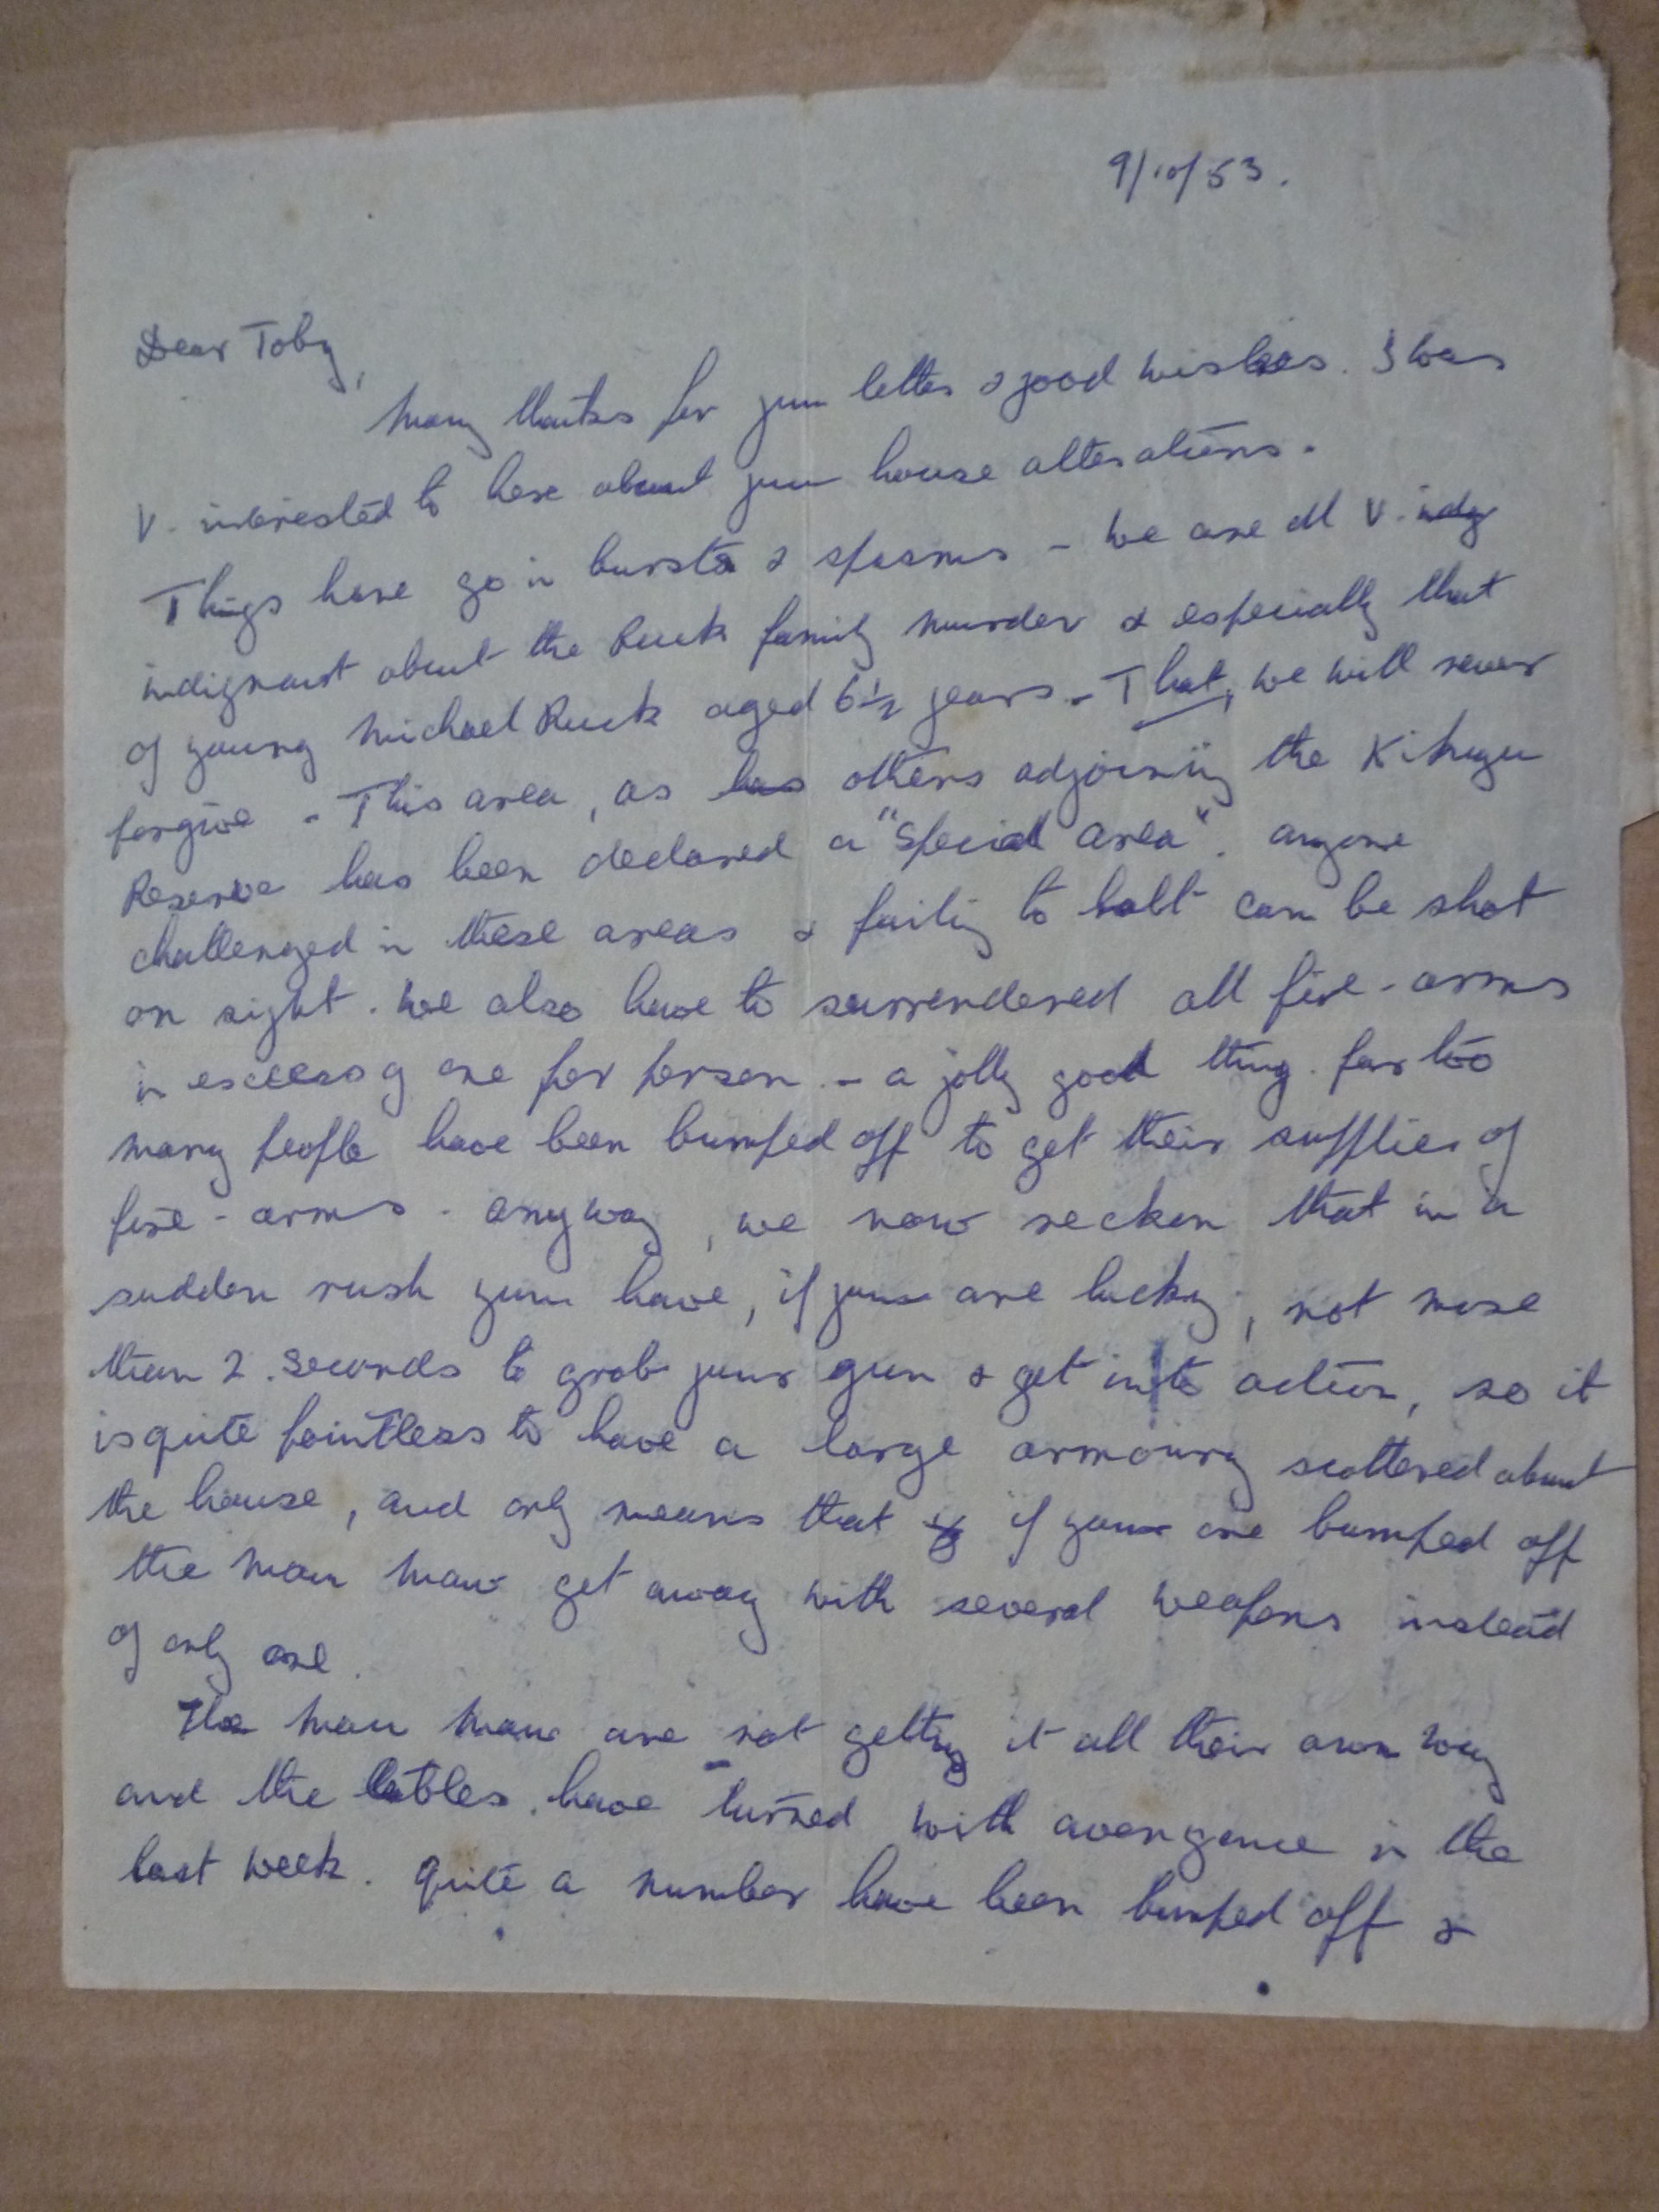 9/10/53.
Dear Toby,
Many thanks for your letter & good wishes. I was
V. interested to hear about your house alterations.
Things have go in bursts & spasms - we are all V. indg
indignant about the Ruck family murder & especially that
of young Michael Ruck aged 6½ years - That, we will never
forgive - This area, as has others adjoining the Kikuyu
Reserve has been declared a "special area". anyone
challenged in these areas & failing to halt can be shot
on sight. We also have to surrendered all fire-arms
in excess of one per person - a jolly good thing. far too
many people have been bumped off to get their supplies of
fire-arms. anyway, we now reckon that in a
sudden rush you have, if you are lucky, not more
than 2. seconds to grab your gun & get into action, so it
is quite pointless to have a large armoury scattered about
the house, and only means that if you are bumped off
the Mau Mau get away with several weapons instead
of only one.
The Mau Mau are not getting it all their own way
and the tables have turned with avengence in the
last week. Quite a number have been bumped off &